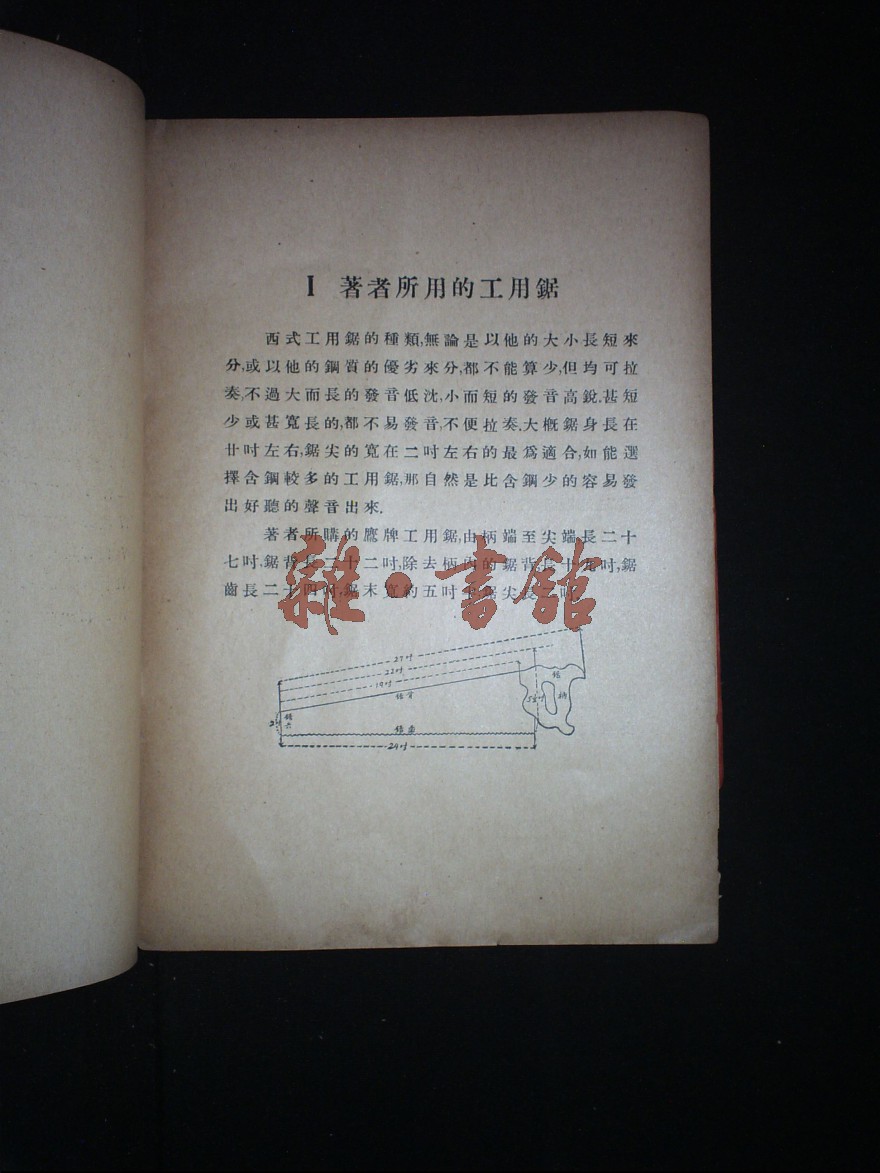 I 著者所用的工用鋸
西式工用鋸的種類,無論是以他的大小長短來
分,或以他的鋼質的優劣來分,都不能算少,但均可拉
奏,不過大而長的發音低沈,小而短的發音高銳.甚短
少或甚寬長的,都不易發音,不便拉奏.大概鋸身長在
廿吋左右,鋸尖的寬在二吋左右的最爲適合,如能選
擇含鋼較多的工用鋸,那自然是比含鋼少的容易發
出好聽的聲音出來.
著者所購的鷹牌工用鋸,由柄端至尖端長二十
七吋,鋸背長二十二吋,除去柄內的鋸背長十九吋,鋸
齒長二十四吋,鋸末寬約五吋半,鋸尖長二吋.
雜·書館
27吋
22吋
19吋
鋸背
鋸柄
5½吋
鋸尖
鋸齒
24吋